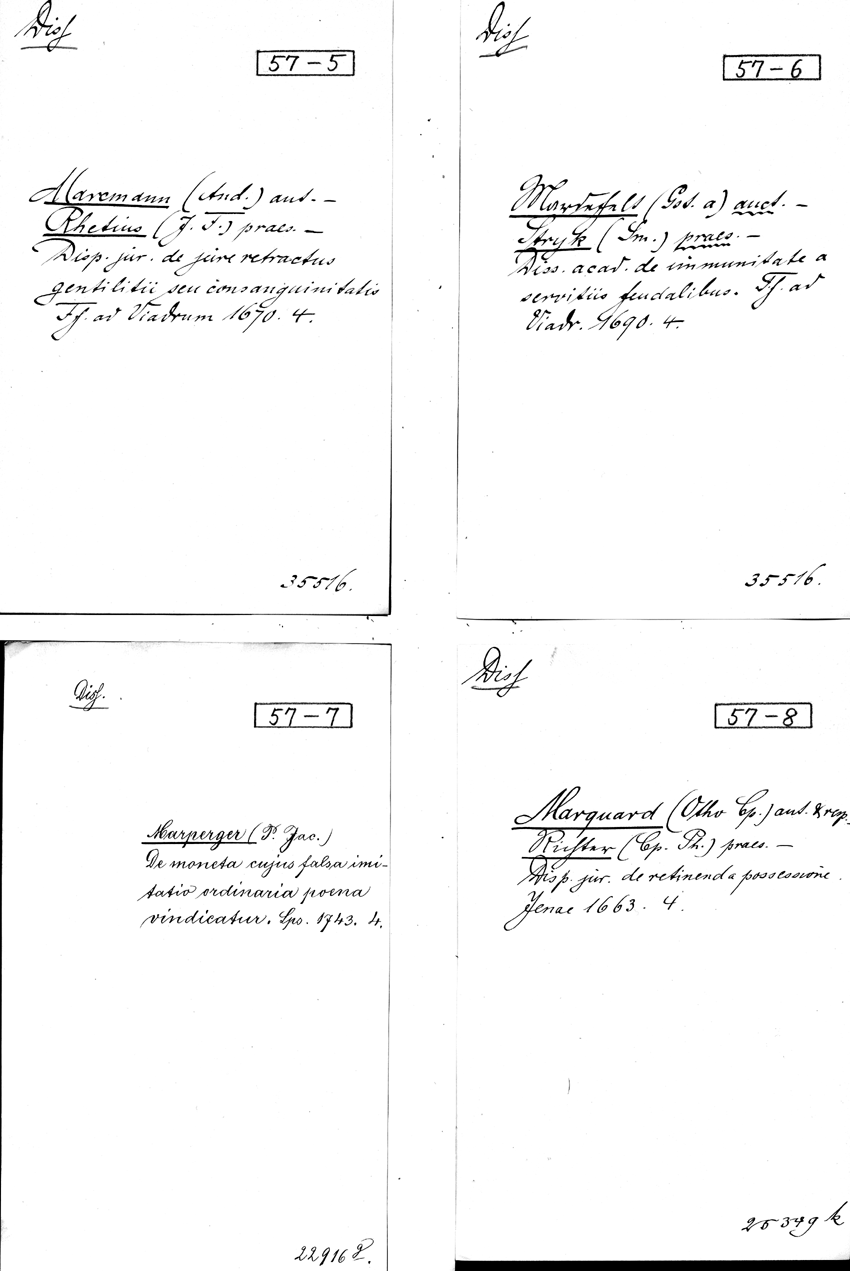 Diss
57-5
Marcmann (And.) aut. —
Rhetius (J. F.) praes. —
Disp. jur. de jure retractus
gentilitii seu consanguinitatis
Ff. ad Viadrum 1670. 4.
35516.
Diss
57-6
Mardefels (Gst. a) auct. —
Stryk (Sm.) praes. —
Diss. acad. de immunitate a
servitiis feudalibus. Ff. ad
Viadr. 1690. 4.
35516.
Diss.
57-7
Marperger (P. Jac.)
De moneta cujus falsa imi-
tatio ordinaria poena
vindicatur. Lps. 1743. 4.
22916
Diss
57-8
Marquard (Otho Cp.) aut. & resp.
Richter (Cp. Ph.) praes. —
Disp. jur. de retinenda possessione.
Jenae 1663. 4.
25379 k